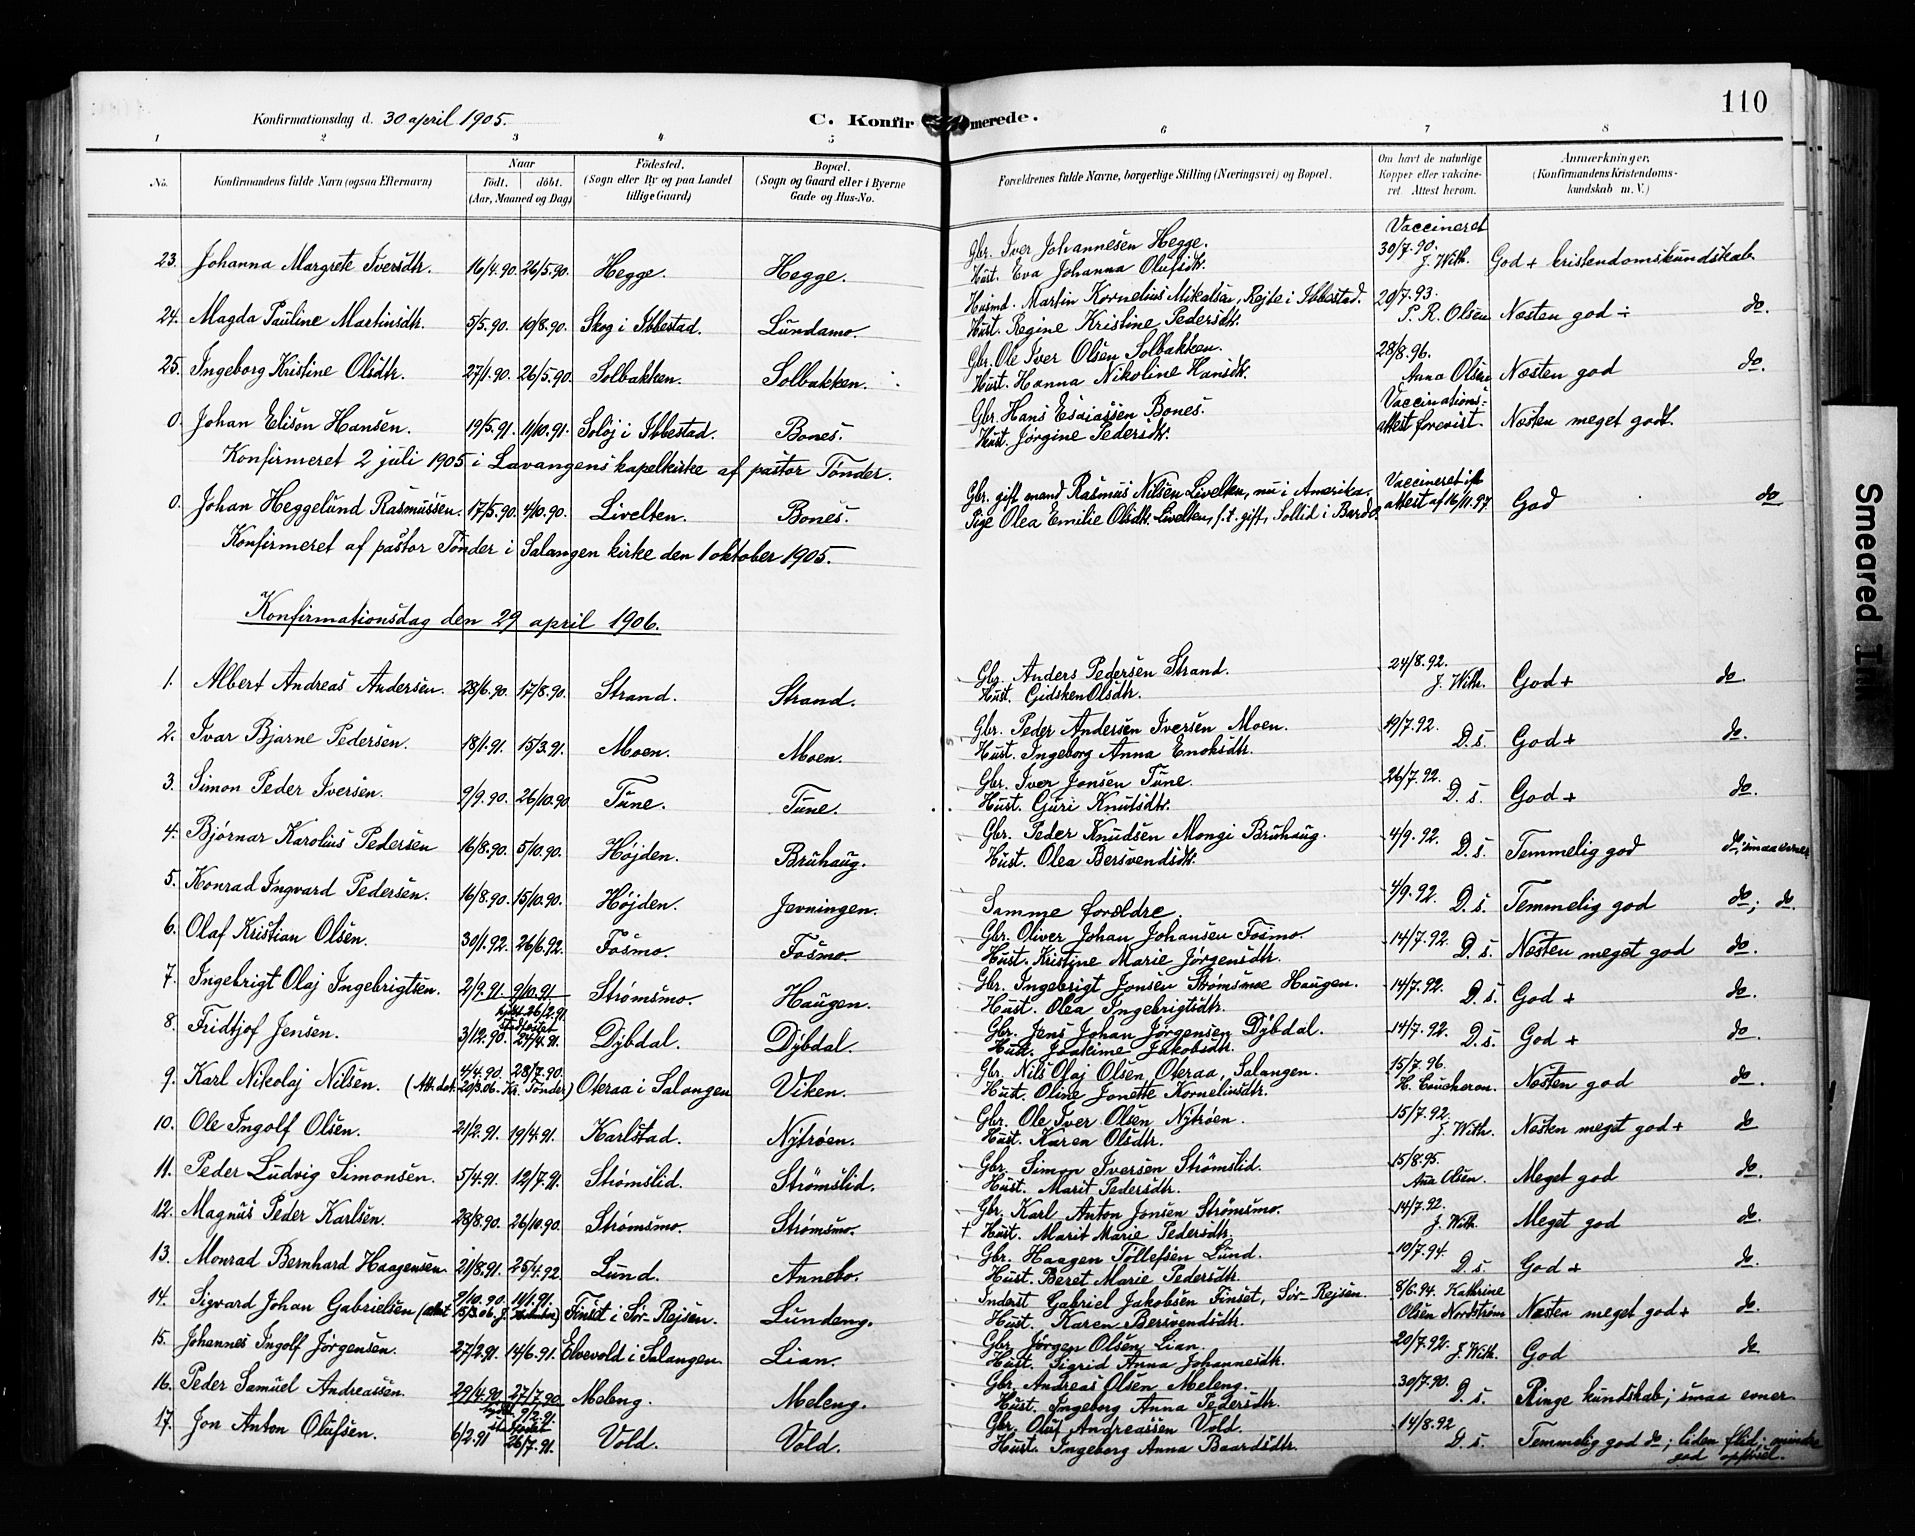 110
Konfirmationsdag d. 30 april 1905.
C. Konfirmerede.
1 2 3 4 5 6 7 8
No. Konfirmandens fulde Navn (ogsaa Efternavn) Naar født. døbt. (Aar, Maaned og Dag) Fødested. (Sogn eller By og paa Landet tillige Gaard) Bopæl. (Sogn og Gaard eller i Byerne Gade og Hus-No. Forældrenes fulde Navne, borgerlige Stilling (Næringsvei) og Bopæl. Om havt de naturlige Kopper eller vakcineret. Attest herom. Anmærkninger. (Konfirmandens Kristendomskundskab m. V.)
Vaccineret
23. Johanna Margrete Iversdtr. 16/4.90. 26/5.90. Hegge. Hegge. Gbr. Iver Johannesen Hegge. Hust. Eva Johanna Olufsdtr. 30/7.90. J. With. God + kristendomskundskab
24. Magda Pauline Martinsdtr. 5/5.90. 10/8.90. Skog i Ibbestad. Lundamo. Husmd. Martin Kornelius Mikalsen, Rejte i Ibbestad. Hust. Regine Kristine Pedersdtr. 20/7.93. P. R. Olsen Næsten god ÷ do.
25. Ingeborg Kristine Olsdtr. 27/1.90. 26/5.90. Solbakken. Solbakken. Gbr. Ole Iver Olsen Solbakken. Hust. Hanna Nikoline Hansdtr. 28/8.96. Anna Olsen Næsten god do.
0. Johan Elison Hansen. 19/5.91. 11/10.91. Soløj i Ibbestad. Bones. Gbr. Hans Esaiassen Bones. Hust. Jørgine Pedersdtr. Vaccinations: attest forevist. Næsten meget godt.
Konfirmeret 2 juli 1905 i Lavangens kapelkirke af pastor Tønder.
0. Johan Heggelund Rasmussen. 17/5.90. 4/10.90. Livelten. Bones. Gbr. gift mand Rasmus Nilsen Livelten, nu i Amerika. Pige Olea Emilie Olsdtr. Livelten, f.t. gift, Soltid i Bardo. Vaccineret ifl. attest af 16/11.97 God do
Konfirmeret af pastor Tønder i Salangen kirke den 1 oktober 1905.
Konfirmationsdag den 29 april 1906.
1. Albert Andreas Andersen. 28/6.90. 17/8.90. Strand. Strand. Gbr. Anders Pedersen Strand. Hust. Gidsken Olsdtr. 24/8.92. J. With. God + do.
2. Ivar Bjarne Pedersen. 18/1.91. 15/3.91. Moen. Moen. Gbr. Peder Andersen Iversen Moen. Hust. Ingeborg Anna Enoksdtr. 19/7.92. D. s. God + do.
3. Simon Peder Iversen. 9/9.90. 26/10.90 Tune. Tune. Gbr. Iver Jonsen Tune. Hust. Guri Knutsdtr. 26/7.92. D. s. God + do.
4. Bjørnar Karolius Pedersen 16/8.90. 5/10.90. Højden. Bruhaug. Gbr. Peder Knudsen Mongi Bruhaug. Hust. Olea Bersvendsdtr. 4/9.92. D. s. Temmelig god do; smaa evner
5. Konrad Ingvard Pedersen. 16/8.90. 15/10.90. Højden. Jevningen. Samme forældre. 4/9.92. D. s. Temmelig god do; do.
6. Olaf Kristian Olsen. 30/1.92. 26/6.92. Fosmo. Fosmo. Gbr. Oliver Johan Johansen Fosmo. Hust. Kristine Marie Jørgensdtr. 14/7.92. D. s. Næsten meget god do.
7. Ingebrigt Olaj Ingebrigtsen. 2/9.91. 9/10.91. Strømsmo. Haugen. Gbr. Ingebrigt Jonsen Strømsmoe Haugen. Hust. Olea Ingebrigtsdtr. 14/7.92. D. s. God + do.
8. Fridtjof Jensen. 3/12.90. hjdbt. 26/2.91. stadfæstet 24/4.91. Dybdal. Dybdal. Gbr. Jens Johan Jørgensen Dybdal. Hust. Joakime Jakobsdtr. 14/7.92. D. s. God + do.
9. Karl Nikolaj Nilsen. 4/4.90. 28/7.90. (Att. dat. 20/3.06. Kr. Tønder) Oteraa i Salangen Viken. Gbr. Nils Olaj Olsen Oteraa, Salangen. Hust. Oline Jonette Korneliusdtr. 15/7.96. H. Coucheron. Næsten god do.
10. Ole Ingolf Olsen. 21/2.91. 19/4.91. Karlstad. Nytrøen. Gbr. Ole Iver Olsen Nytrøen. Hust. Karen Olsdtr. 15/7.92. J. With. Næsten meget god + do
11. Peder Ludvig Simonsen. 5/4.91. 12/7.91. Strømslid. Strømslid. Gbr. Simon Iversen Strømslid. Hust. Marit Pedersdtr. 15/8.95. Ana Olsen. Meget god do.
12. Magnus Peder Karlsen. 28/8.90. 26/10.90. Strømsmo. Strømsmo. Gbr. Karl Anton Jonsen Strømsmo. + Hust. Marit Marie Pedersdtr. 14/7.92. J. With. Meget god do.
13. Monrad Bernhard Haagensen. 21/8.91. 25/4.92. Lund. Annebo. Gbr. Haagen Tollefsen Lund. Hust. Beret Marie Pedersdtr. 10/7.94. D. s. God + do.
14. Sigvard Johan Gabrielsen (attest 15/3.06. J.) 9/10.90. 11/1.91. Finset i Sør-Rejsen. Lundeng. Inderst Gabriel Jakobsen Finset, Sør-Rejsen. Hust. Karen Bersvendsdtr. 8/6.94. Kathrine Olsen Nordstrøm Næsten meget god + do.
15. Johannes Ingolf Jørgensen. 27/2.91. 14/6.91. Elvevold i Salangen. Lian. Gbr. Jørgen Olsen Lian. Hust. Sigrid Anna Johannesdtr. 20/7.92. J. With. God do
16. Peder Samuel Andreassen. 29/4.90. 27/7.90. Meleng. Meleng. Gbr. Andreas Olsen Meleng. Hust. Ingeborg Anna Pedersdtr. 30/7.90. D. s. Ringe kundskab; smaa evner
17. Jon Anton Olufsen. 6/2.91 hjdbt 9/2.91 stadfæstet 26/7.91. Vold. Vold. Gbr. Oluf Andreassen Vold. Hust. Ingeborg Anna Baardsdtr. 14/8.92 D. s. Temmelig god do; liden flid; mindre god opførsel.
Smeared